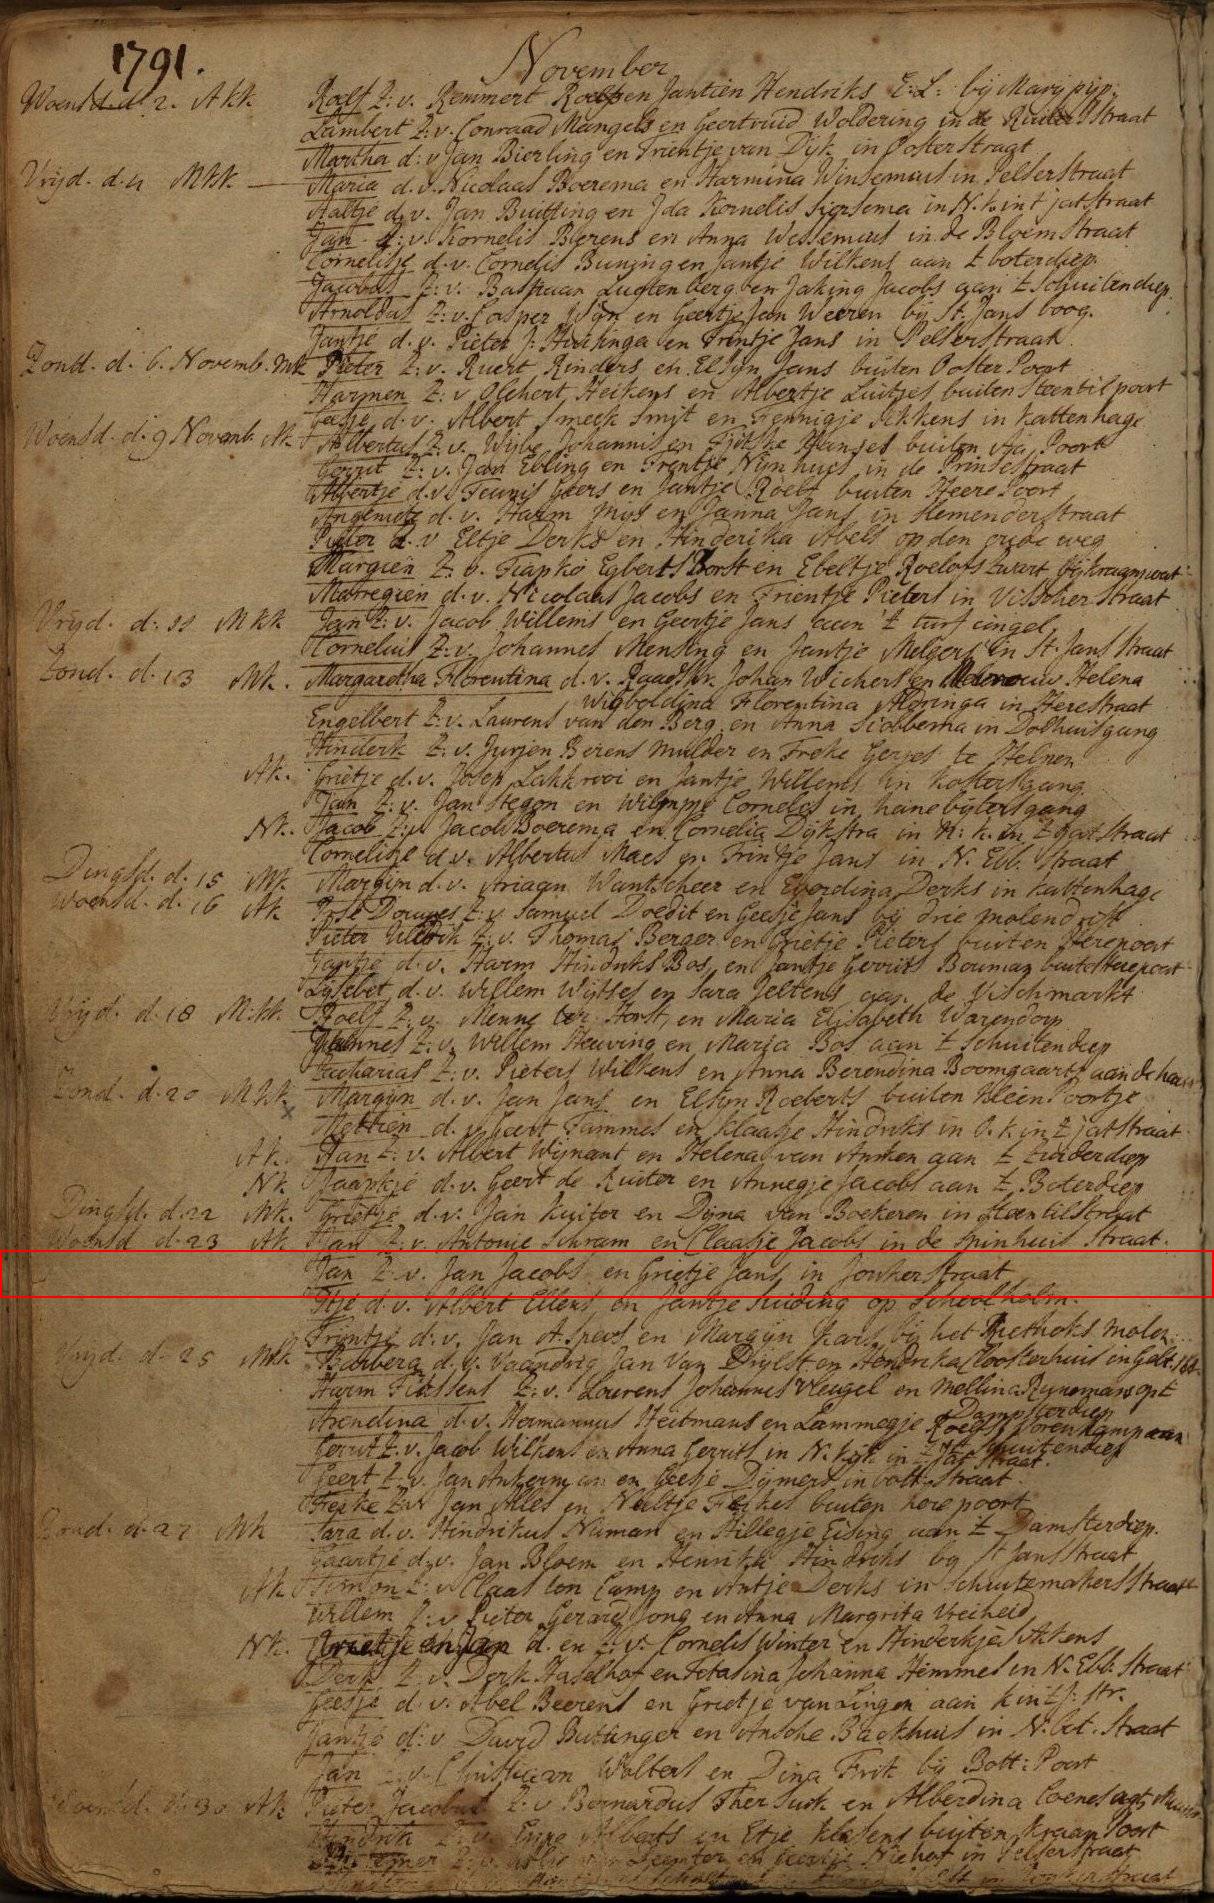 1791. November
Woensd. d. 2. AKK. Roelf Z: v. Remmert Roelfs en Jantien Hendriks E: L: bij Marij pijp.
Lambert Z: v. Conraad Mangels en Geertruid Woldering in de Ruiter Straat
Martha d: v Jan Bierling en Trientje van Dijk in Ooster Straat
Vrijd. d. 4 MKK. Maria d. v. Nicolaas Boerema en Harmina Winsemius in Pelserstraat
Aaltje d. v. Jan Buitsing en Ida Kornelis Siersema in N. k. in 't jatstraat
Jan Z: v. Kornelis Berens en Anna Wessemius in de Bloemstraat
Cornelisje d. v. Cornelis Buning en Jantje Wilkens aan 't boterdiep.
Jacobus Z: v. Bastiaan Lugtenberg en Jaking Jacobs aan 't schuitendiep
Arnoldus Z: v. Casper Wijn en Geertje Jan Weeren bij St. Jans boog.
Jantje d. v. Pieter J: Huizinga en Trintje Jans in Pelserstraat.
Zond. d. 6. Novemb. MK Pieter Z: v. Ruert Rinders en Elsijn Jans buiten Ooster Poort
Harmen Z: v Olchert Heikens en Albertje Luitjes buiten Steentilpoort
Geesje d. v. Albert Smeek Smit en Fennigje Ikkens in Kattenhage
Woensd. d. 9 Novemb. Ak Albertus Z: v. Wijbe Johannis en Fritske Hanses buiten A Poort
Gerrit Z: v. Jan Ebling en Trentje Nijnhuis in de Prinsestraat
Albertje d. v. Teunis Geers en Jantje Roelf buiten Heere Poort
Angenietje d. v. Harm Mijs en Janna Jans in Hemenderstraat
Pieter d. v Eltje Derks en Hinderika Abels op den oude weg
Margien Z: v. Fiapko Egberts Vorst en Ebeltje Roelofs Zwert bij kraanpoort
Marregien d. v. Nicolaas Jacobs en Trientje Pieters in Visscherstraat
Vrijd. d: 11 MKK Jan Z: v. Jacob Willems en Geertje Jans aan 't turf cingel,
Cornelius Z: v. Johannes Mensing en Jantje Melgers in St. Jans Straat
Zond. d. 13 MK. Margaretha Florentina d. v. Raadshr. Johan Wichers en Mevrouw Helena
Wigboldina Florentina Aldringa in Herestraat
Engelbert Z: v. Laurens van den Berg en Anna Siobbema in Dolhuisgang
Hinderk Z: v. Jurjen Berens Mulder en Freke Gerjes te Helpen
Ak. Grietje d. v. Josep Lakkrooi en Jantje Willems in Kostersgang
Jan Z: v. Jan Stegen en Wilmpje Cornelis in hanebijtersgang
Nk. Jacob Z: v Jacob Boerema en Cornelia Dijkstra in N: k. in 't jatstraat
Cornelisje d v. Albertus Maes en Trintje Jans in N. Ebb. Straat
Dingsd. d. 15 MK. Margijn d. v. Ariaan Wantscheer en Everdina Derks in kattenhage
Woensd. d. 16 Ak Douwes Z: v. Samuel Doedit en Geesje Jans bij drie molendrift
Pieter Z: v. Thomas Berger en Grietje Pieters buiten Herepoort
Jantje d. v. Harm Hindriks Bos en Jantje Gerrits Bouman buite Herepoort
Lijsebet d. v. Willem Wijtses en Sara Jeltens aan de Vischmarkt
Vrijd. d. 18 M:KK Roelf Z: v. Menne ter Horst, en Maria Elisabeth Warendorp
Johannes Z: v. Willem Heuving en Marja Bos aan 't Schuitendiep
Zacharias Z: v. Pieters Wilkens en Anna Berendina Boomgaarts aan de haven
Zond. d. 20 MKK Margijn d. v. Jan Jans en Elsijn Roeberts buiten Klein Poortje
Mettien d. v Geert Tammes en Klaasje Hindriks in O. k. in 't jatstraat
Ak. Jan Z: v. Albert Wijnant en Helena van Anken aan 't Zuiderdiep
Nk Jaapkje d. v. Geert de Ruiter en Annegje Jacobs aan 't Boterdiep
Dingsd. d. 22 MK. Grietje d. v. Jan Kuiter en Dijna van Boekeren in Steentilstraat
Woensd d. 23 Ak Jan Z: v. Antonie Schram en Claasje Jacobs in de Spinhuis Straat.
Jan Z: v. Jan Jacobs en Grietje Jans in Jonkerstraat
Itje d. v. Albert Ellens en Jantje Suiding op Schoolholm.
Trijntje d: v. Jan A. Spees en Margijn Kars bij het molen
Vrijd. d. 25 MKK Barbera d. v. Vaandrig Jan Van Dijlst en Hendrika Cloosterhuis in Gelk. str.
Harm Z: v. Lourens Johannes Vleugel en Mellina Runeman op 't
Damsterdiep
Arendina d. v. Hermannus Heitmans en Lammegje Roelfs Dorenkamp aan
't Schuitendiep
Gerrit Z: v. Jacob Wilkens en Anna Gerrits in N. kijk in 't Jat Straat.
Geert Z: v. Jan Ankerman en Geesje Dijmers in bott. Straat
Feeke Z: v Jan Alles en Neeltje Feekes buiten here poort
Zond. d. 27 MK Sara d. v. Hindrikus Numan en Hillegje Eising aan 't Damsterdiep.
Gaartje d. v. Jan Bloem en Henrika Hindriks bij St Jansstraat
Ak Simon Z: v Claas ten Camp en Antje Derks in Schuitemakersstraat
Willem Z: v Pieter Gerard Jong en Anna Margrita Vreiheid
Nk. Grietje en Jan d. en Z: v. Cornelis Winter en Hinderkje Ikkens
Derk Z: v. Derk Haselhof en Fetasina Johanna Hemmes in N. Ebb. Straat
Geesje d. v. Abel Beerens en Grietje van Lingen aan k in t J: str.
Jantje d: v David Butzinger en Ansche Backhuis in N. bot. Straat
Jan Z: v. Christiaan Wolters en Dina Frik bij Bott: Poort
Woensd. d. 30 Ak Pieter Jacobus Z: v Bernardus Ther Suik en Alberdina Coenes agt.
Hindrik Z: v. Enne Alberts en Etje Klasens buiten Kraan Poort
Z: v. Deemter en Geertje Niehof in Pelserstraat